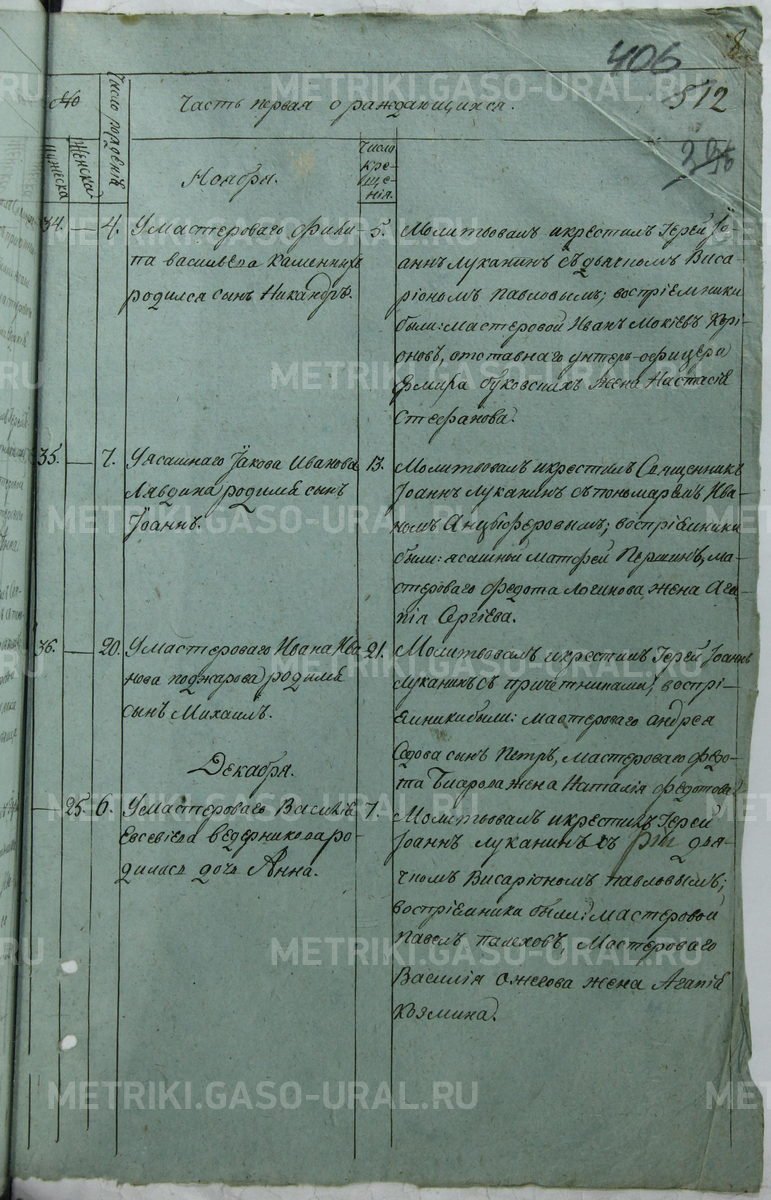 8
406
512
№
Число рожденія
Часть первая о раждающихся.
Мужеска
Женска
Ноября.
Число
кре-
ще-
нія.
34. — 4. У Мастероваго Фили-
та Васильева Каменныхъ
родился сынъ Никандръ.
5. Молитвовалъ и крестилъ Іерей Їо-
аннъ Луканинъ съ дьячкомъ Виса-
ріономъ Павловымъ; воспріемники
были: мастеровой Иванъ Мокіевъ Хорі-
оновъ, отставнаго унтеръ-офицера
Емира Буковскихъ жена Настасія
Стефанова.
35. — 7. У ясашнаго Їакова Иванова
Лявдина родился сынъ
Їоаннъ.
13. Молитвовалъ и крестилъ Священникъ
Іоаннъ Луканинъ съ пономаремъ Ива-
номъ Анцыферовымъ; воспріемники
были: ясашной Матфей Першинъ, ма-
стероваго Федота Логинова жена Ага-
пія Сергіева.
36. — 20. У Мастероваго Ивана Ива
нова Поджарова родился
сынъ Михаилъ.
21. Молитвовалъ и крестилъ Іерей Іоаннъ
Луканинъ съ причетниками; воспрі-
емники были: мастероваго Андрея
Седова сынъ Петръ, мастероваго Федо-
та жена Наталія Федотова.
Декабря.
— 25. 6. У Мастероваго Василія
Евсевіева Ведерникова ро-
дилась дочь Анна.
7. Молитвовалъ и крестилъ Іерей
Іоаннъ Луканинъ съ дья-
чкомъ Висаріономъ Павловымъ;
воспріемники были: мастеровой
Павелъ Палеховъ, Мастероваго
Василія Ожегова жена Агапія
Козмина.
METRIKI.GASO-URAL.RU